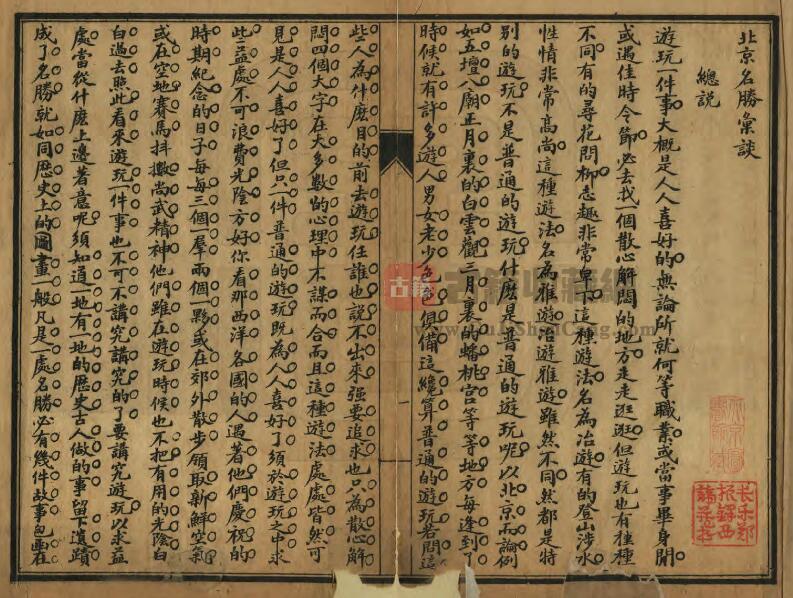 北京名勝彙談
總說
遊玩一件事大概是人人喜好的無論所就何等職業或當事畢身閒
或遇佳時令節必去找一個散心解悶的地方走走逛逛但遊玩也有種種
不同有的尋花問柳志趣非常卑下這種遊法名為冶遊有的登山涉水
性情非常高尚這種遊法名為雅遊冶遊雅遊雖然不同然都是特
別的遊玩不是普通的遊玩什麽是普通的遊玩呢以北京而論例
如五壇八廟正月裏的白雲觀三月裏的蟠桃宮等等地方每逢到了
時候就有許多遊人男女老少色色俱備這纔算普通的遊玩若問這
些人為什麽目的前去遊玩任誰也說不出來强要追求也只為散心解
悶四個大字在大多數的心理中不謀而合而且這種遊法處處皆然可
見是人人喜好了但只一件普通的遊玩既為人人喜好了須於遊玩之中求
些益處不可浪費光陰方好你看那西洋各國的人遇着他們慶祝的
時期紀念的日子每每三個一羣兩個一夥或在郊外散步領取新鮮空氣
或在空地賽馬抖擻尚武精神他們雖在遊玩時候也不把有用的光陰白
白過去照此看來遊玩一件事也不可不講究講究的了要講究遊玩以求益
處當從什麽上邊著意呢須知道一地有一地的歷史古人做的事留下遺蹟
成了名勝就如同歷史上的圖畫一般凡是一處名勝必有幾件故事包
在
长乐郑
振铎西
谛藏书
古籍